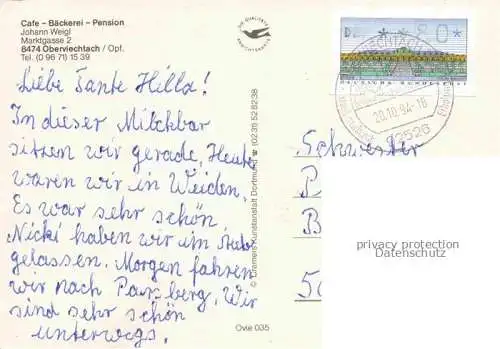 Cafe – Bäckerei – Pension
Johann Weigl
Marktgasse 2
8474 Oberviechtach / Opf.
Tel. (0 96 71) 15 39
Liebe Tante Hilla!
In dieser Milchbar
sitzen wir gerade, Heute
waren wir in Weiden.
Es war sehr schön.
"Nicki" haben wir im
gelassen. Morgen fahren
wir nach Parsberg. Wir
sind sehr schön
unterwegs.
© Cremers Kunstanstalt Dortmund ☎ (0231) 528238
Ovie 035
DEUTSCHE BUNDESPOST
20.10.94-16
92526
Schwester
P
B
privacy protection
Datenschutz